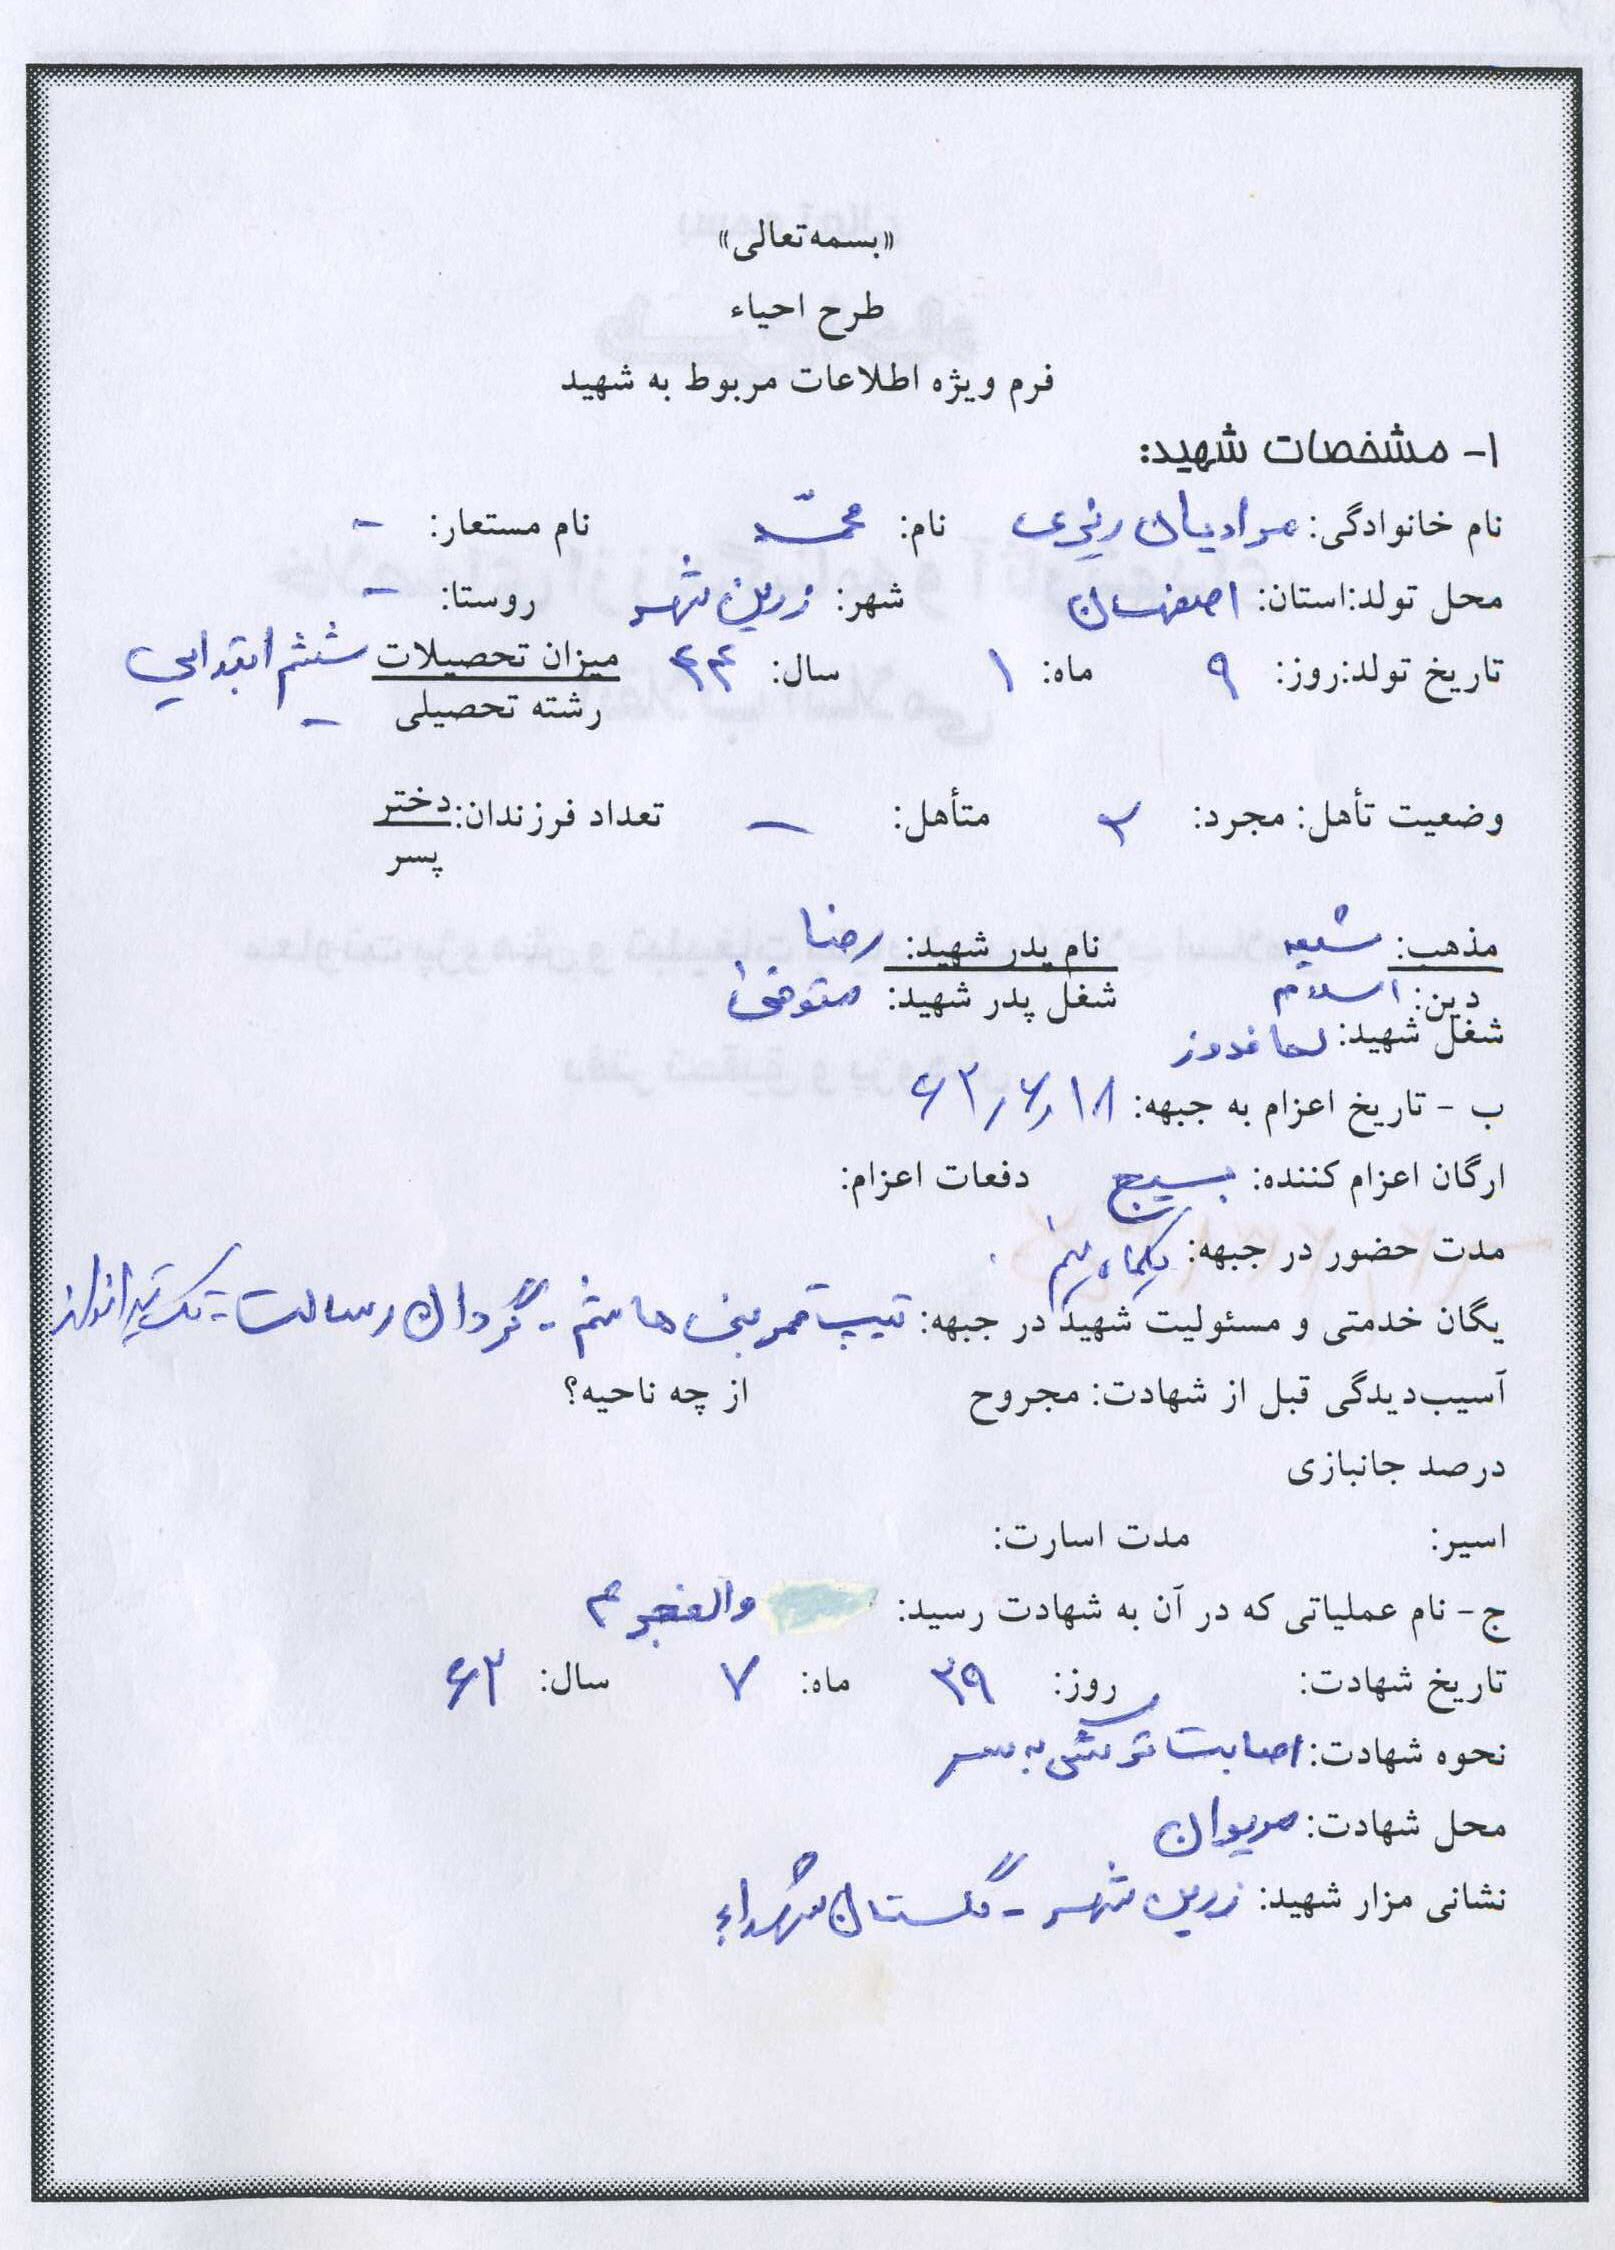 «بسمه‌تعالی»
طرح احیاء
فرم ویژه اطلاعات مربوط به شهید
۱- مشخصات شهید:
نام خانوادگی: مرادیان ریزی نام: محمّد نام مستعار: -
محل تولد:استان: اصفهان شهر: زرین شهر روستا: -
تاریخ تولد:روز: ۹ ماه: ۱ سال: ۴۴ میزان تحصیلات ششم ابتدایی
رشته تحصیلی -
وضعیت تأهل: مجرد: متأهل: - تعداد فرزندان: دختر
پسر
مذهب: شیعه نام پدر شهید: رضا
دین: اسلام شغل پدر شهید: متوفی
شغل شهید: لحافدوز
ب - تاریخ اعزام به جبهه: ۶۲/۶/۱۸
ارگان اعزام کننده: بسیج دفعات اعزام:
مدت حضور در جبهه: یکماه نیم
یگان خدمتی و مسئولیت شهید در جبهه: تیپ قمر بنی هاشم - گردان رسالت - تک تیرانداز
آسیب‌دیدگی قبل از شهادت: مجروح از چه ناحیه؟
درصد جانبازی
اسیر: مدت اسارت:
ج- نام عملیاتی که در آن به شهادت رسید: والفجر ۴
تاریخ شهادت: روز: ۲۹ ماه: ۷ سال: ۶۲
نحوه شهادت: اصابت ترکش به سر
محل شهادت: مریوان
نشانی مزار شهید: زرین شهر - گلستان شهداء